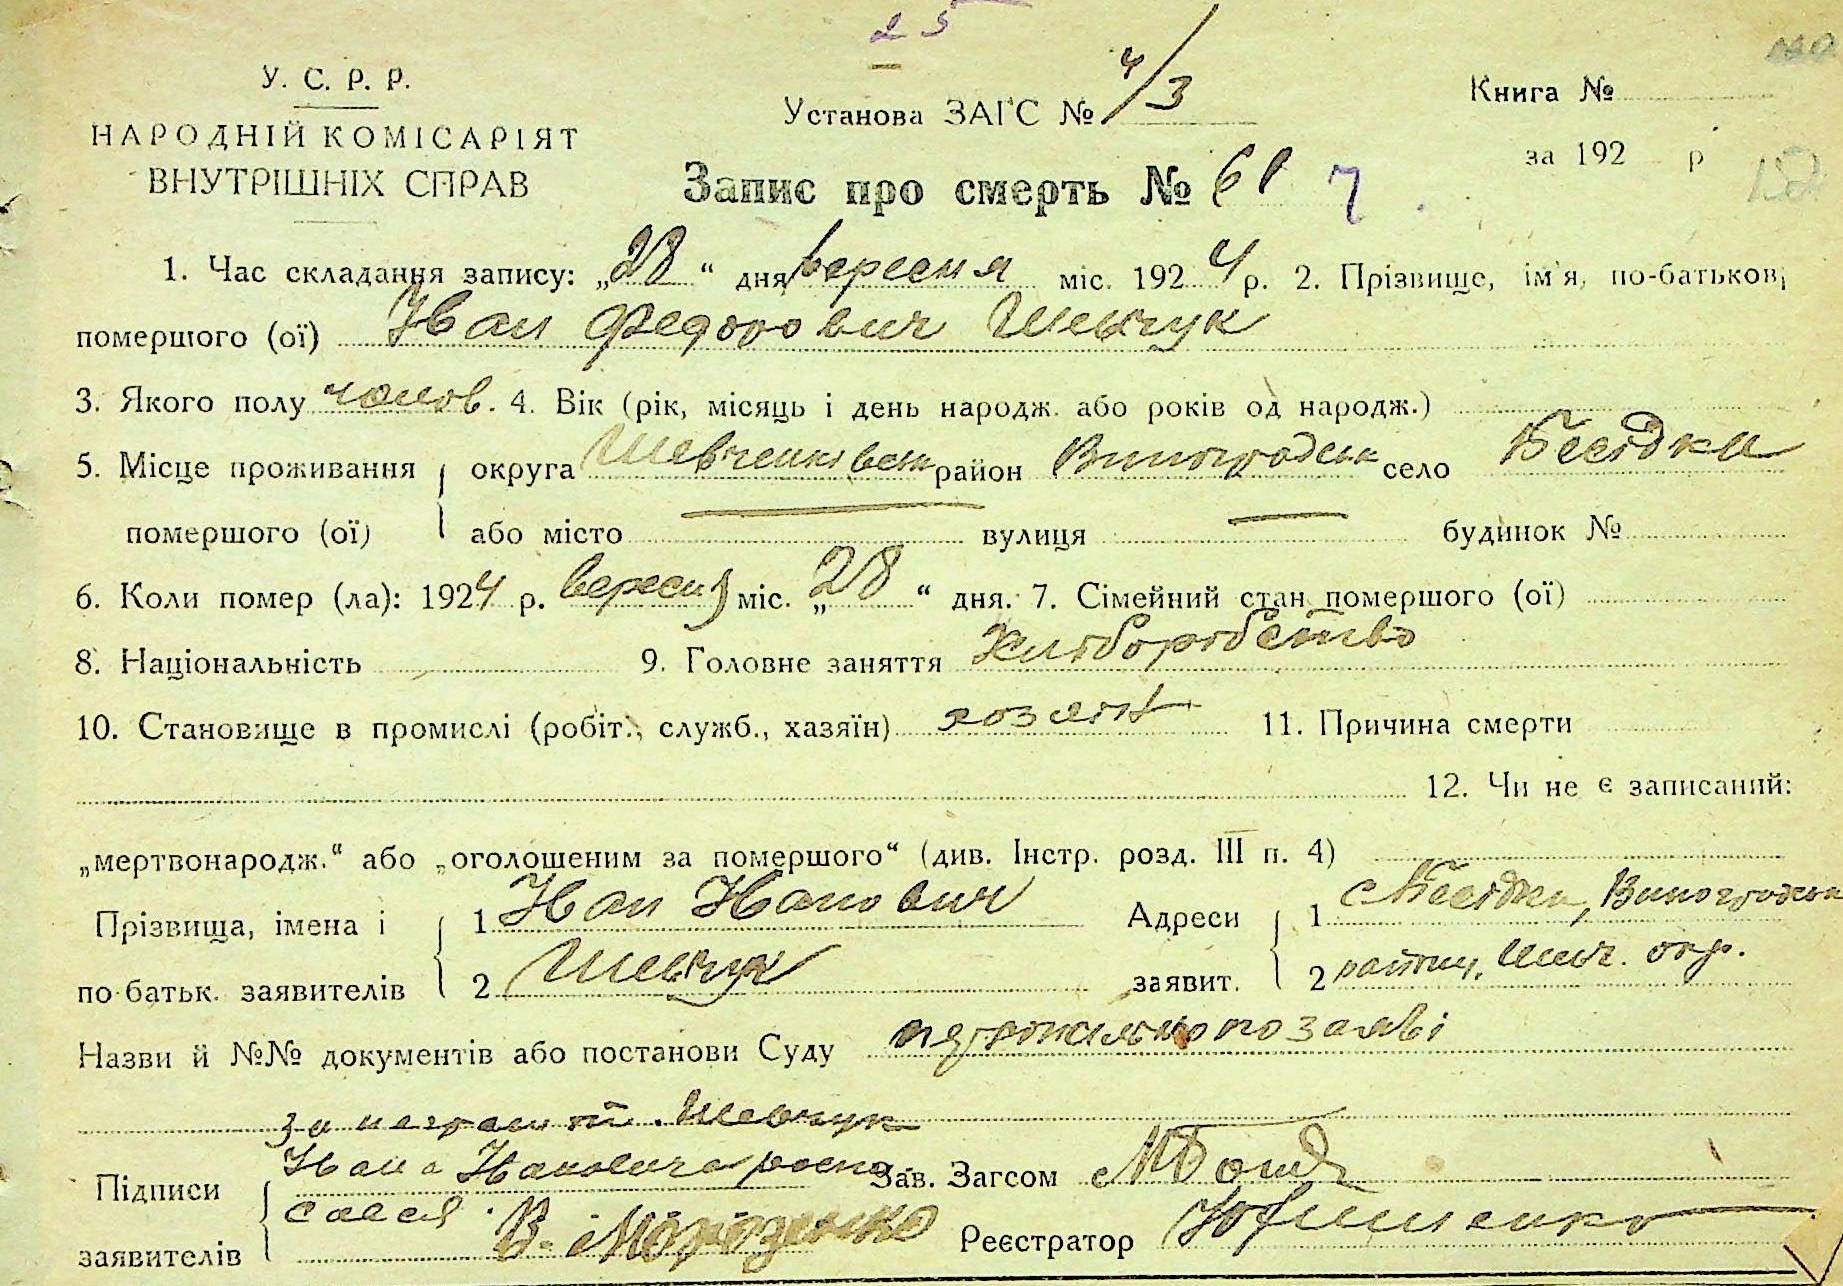 25
У. С. Р. Р.
НАРОДНІЙ КОМІСАРІЯТ
ВНУТРІШНІХ СПРАВ
Установа ЗАГС № 4/3
Книга №
за 192 р
Запис про смерть № 61 7
1. Час складання запису: „28“ дня вересня міс. 1924 р. 2. Прізвище, ім'я, по-батькові
помершого (ої) Иван Федорович Шевчук
3. Якого полу чолов. 4. Вік (рік, місяць і день народж. або років од народж.)
5. Місце проживання округа Шевченківськ район Виногродськ село Беєідки
помершого (ої) або місто — вулиця — будинок №
6. Коли помер (ла): 1924 р. вересня міс. „28“ дня. 7. Сімейний стан помершого (ої)
8. Національність 9. Головне заняття Хліборобство
10. Становище в промислі (робіт., служб., хазяїн) хозяін 11. Причина смерти
12. Чи не є записаний:
„мертвонародж.“ або „оголошеним за помершого“ (див. Інстр. розд. III п. 4)
Прізвища, імена і 1 Иван Иванович Адреси 1 с. Беєідки, Виногродськ
по батьк. заявителів 2 Шевчук заявит. 2 району, Шевч. окр.
Назви й №№ документів або постанови Суду по заяві
за неграмотн. Шевчук
Підписи Ивана Ивановича роспи Зав. Загсом
заявителів сался В. Морозенко Реєстратор